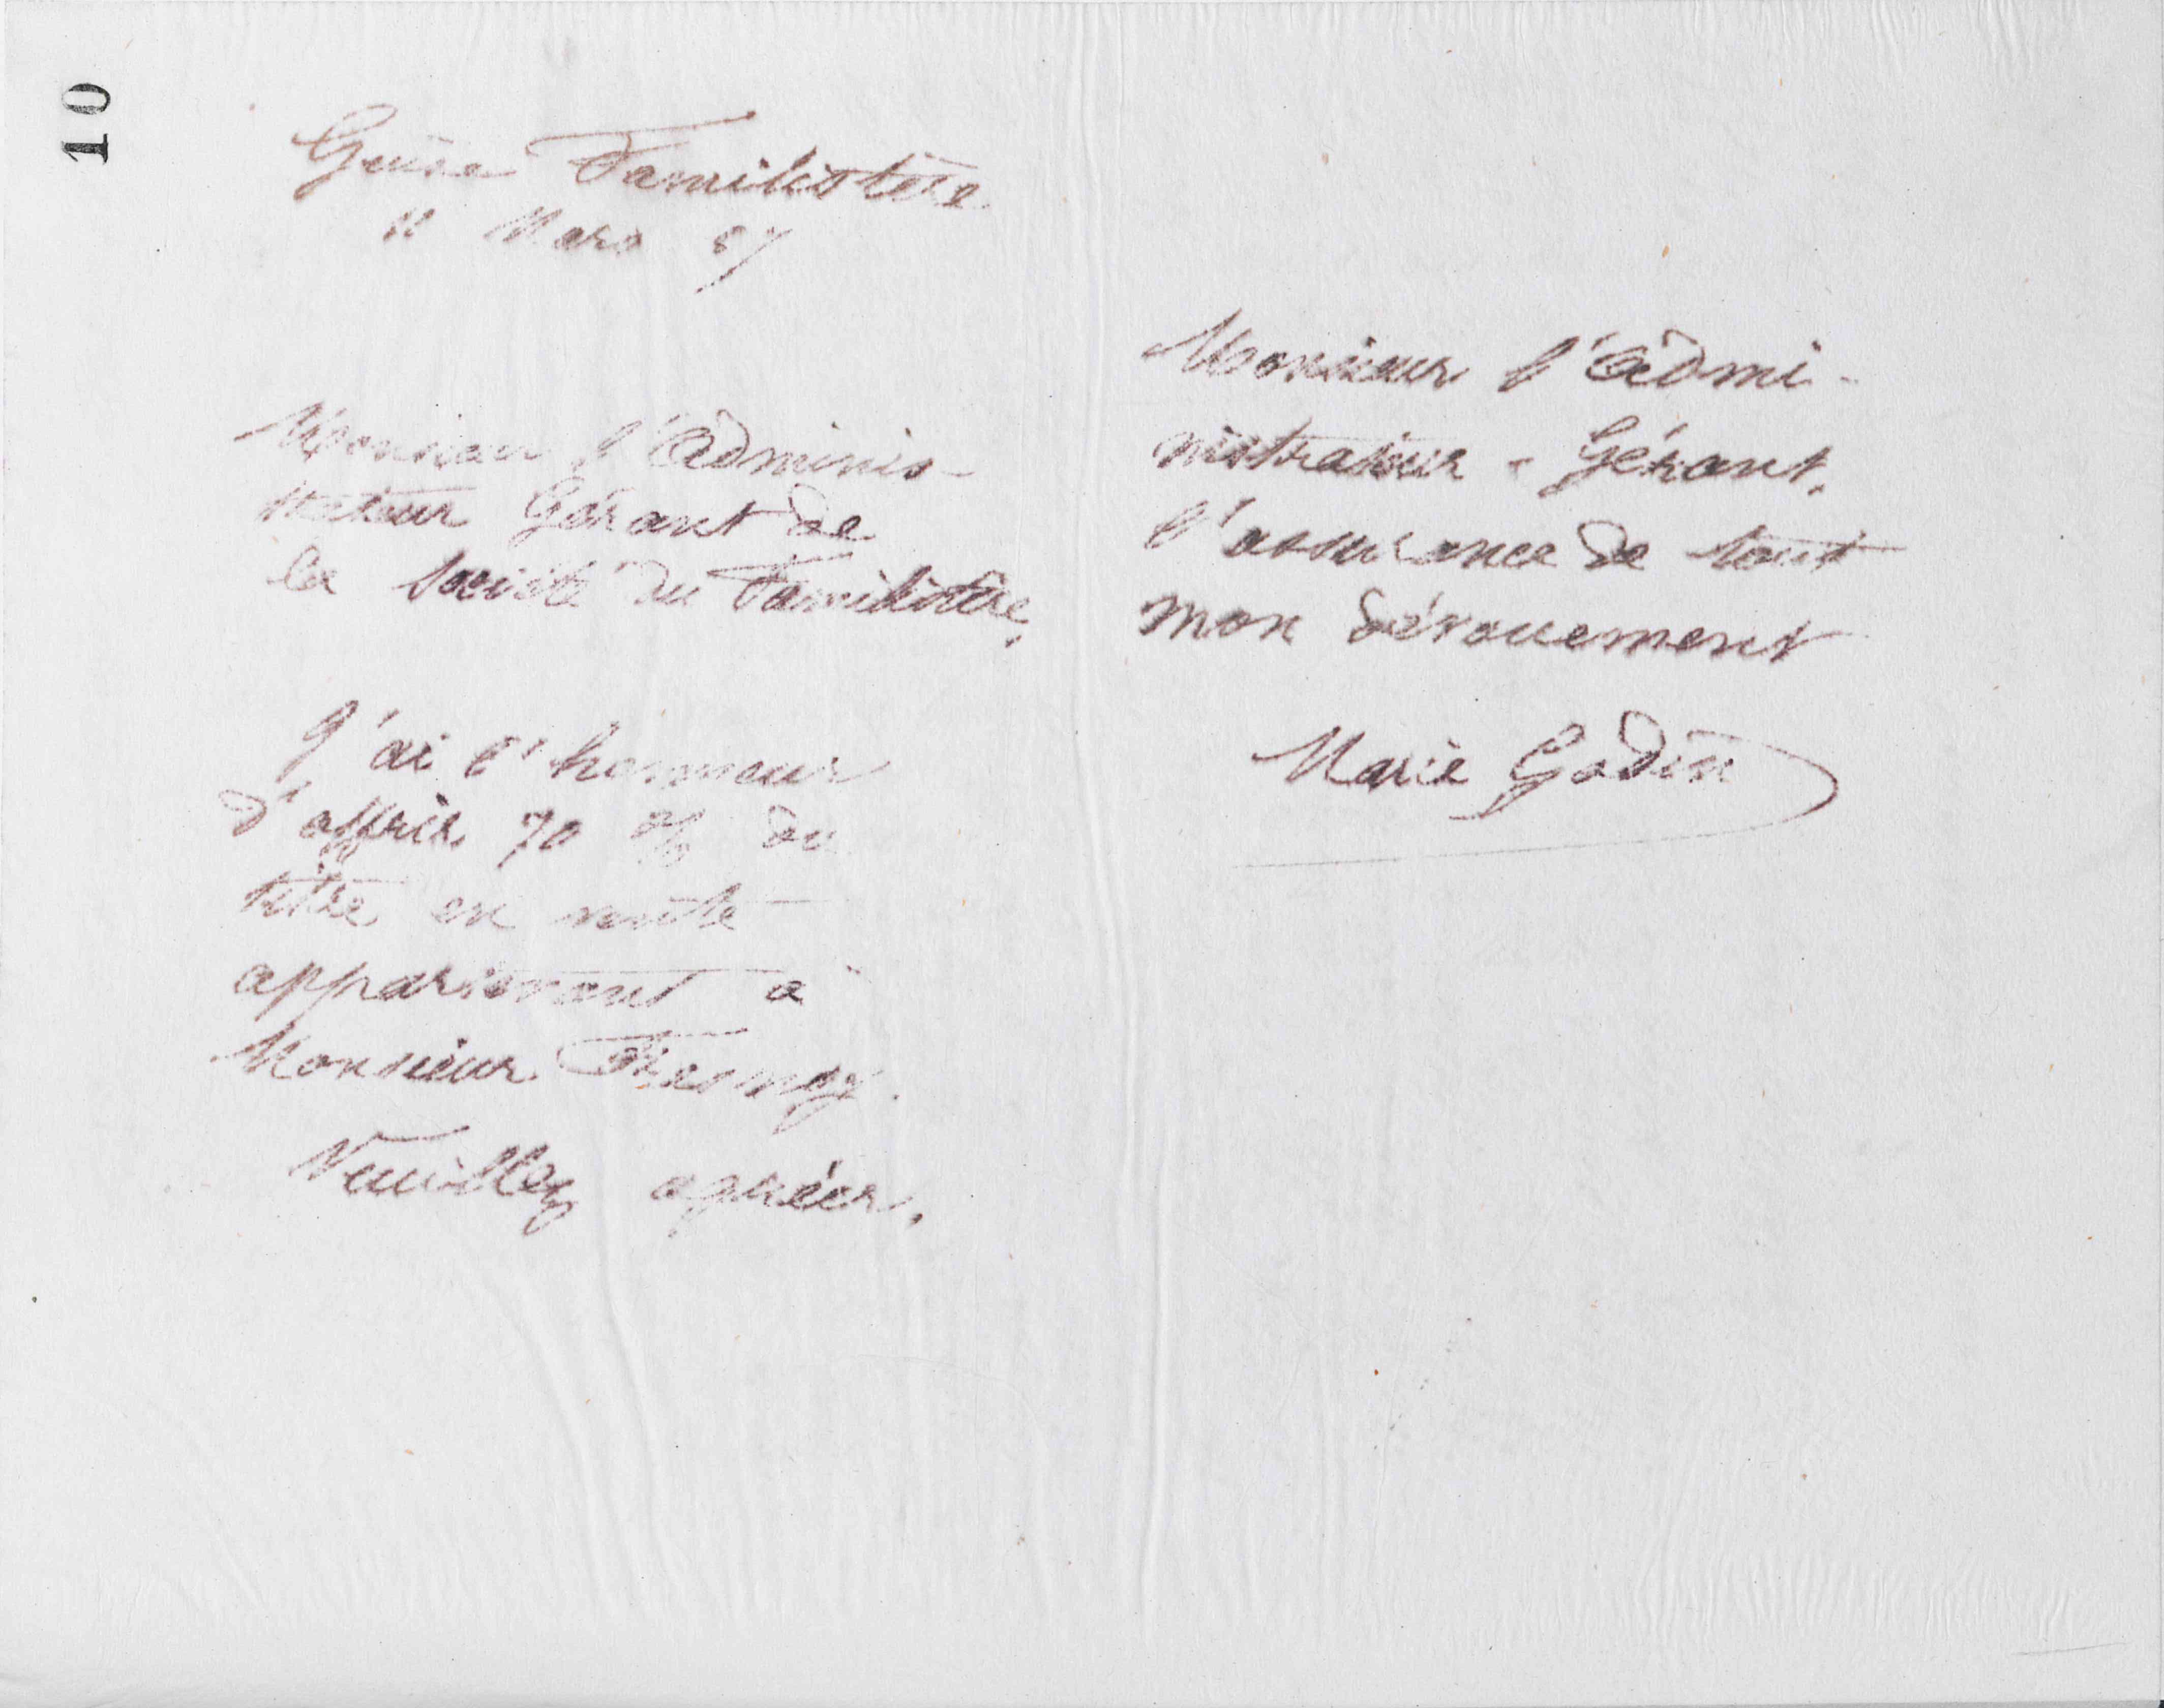 10
Guise Familistère
11 Mars 87
Monsieur l'Adminis-
trateur Gérant de
la Société du Familistère,
J'ai l'honneur
d'offrir 70 % du
titre en vente
appartenant à
Monsieur
Veuillez agréer,
Monsieur l'Admi-
nistrateur - Gérant,
l'assurance de tout
mon dévouement
Marie Godin